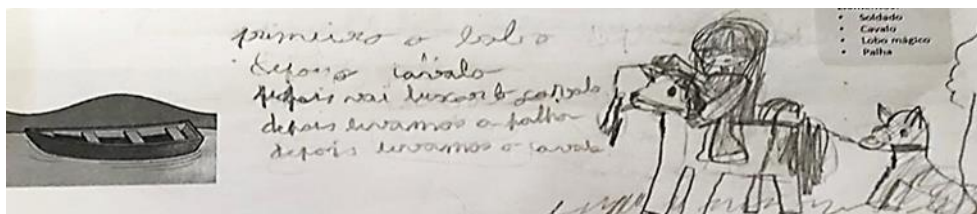 primeiro o lobo
depois cavalo
depois vai buscar o cavalo
depois levamos a palha
depois levamos o cavalo
• Soldado
• Cavalo
• Lobo mágico
• Palha